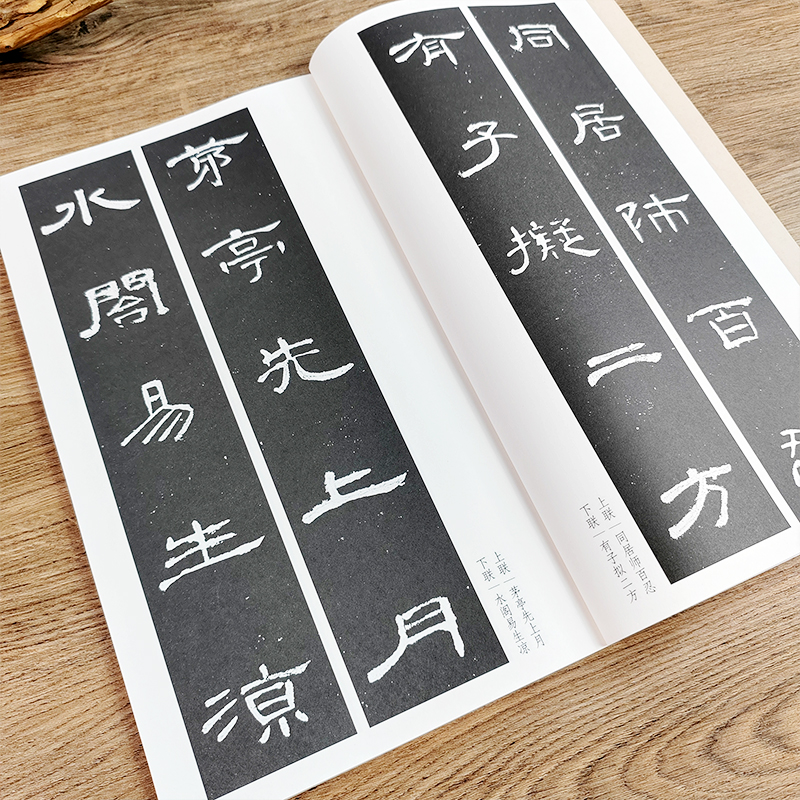 同居師百
有子擬二方
上联｜同居师百忍
下联｜有子拟二方
茅亭先上月
水閣易生涼
上联｜茅亭先上月
下联｜水阁易生凉